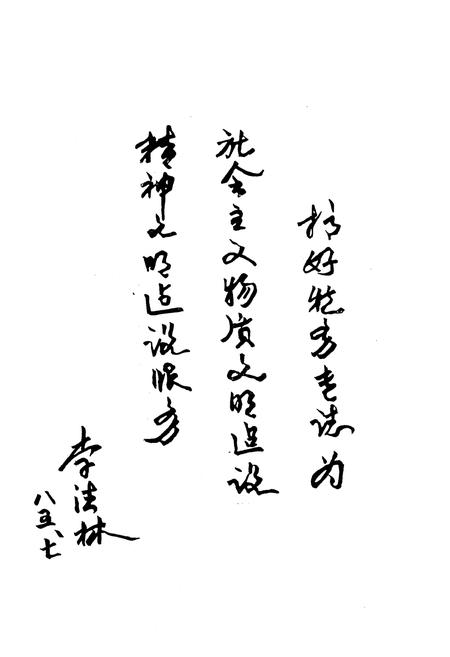 搞好税务专誌为
社会主义物质文明建设
精神文明建设服务
李法林
八五、七